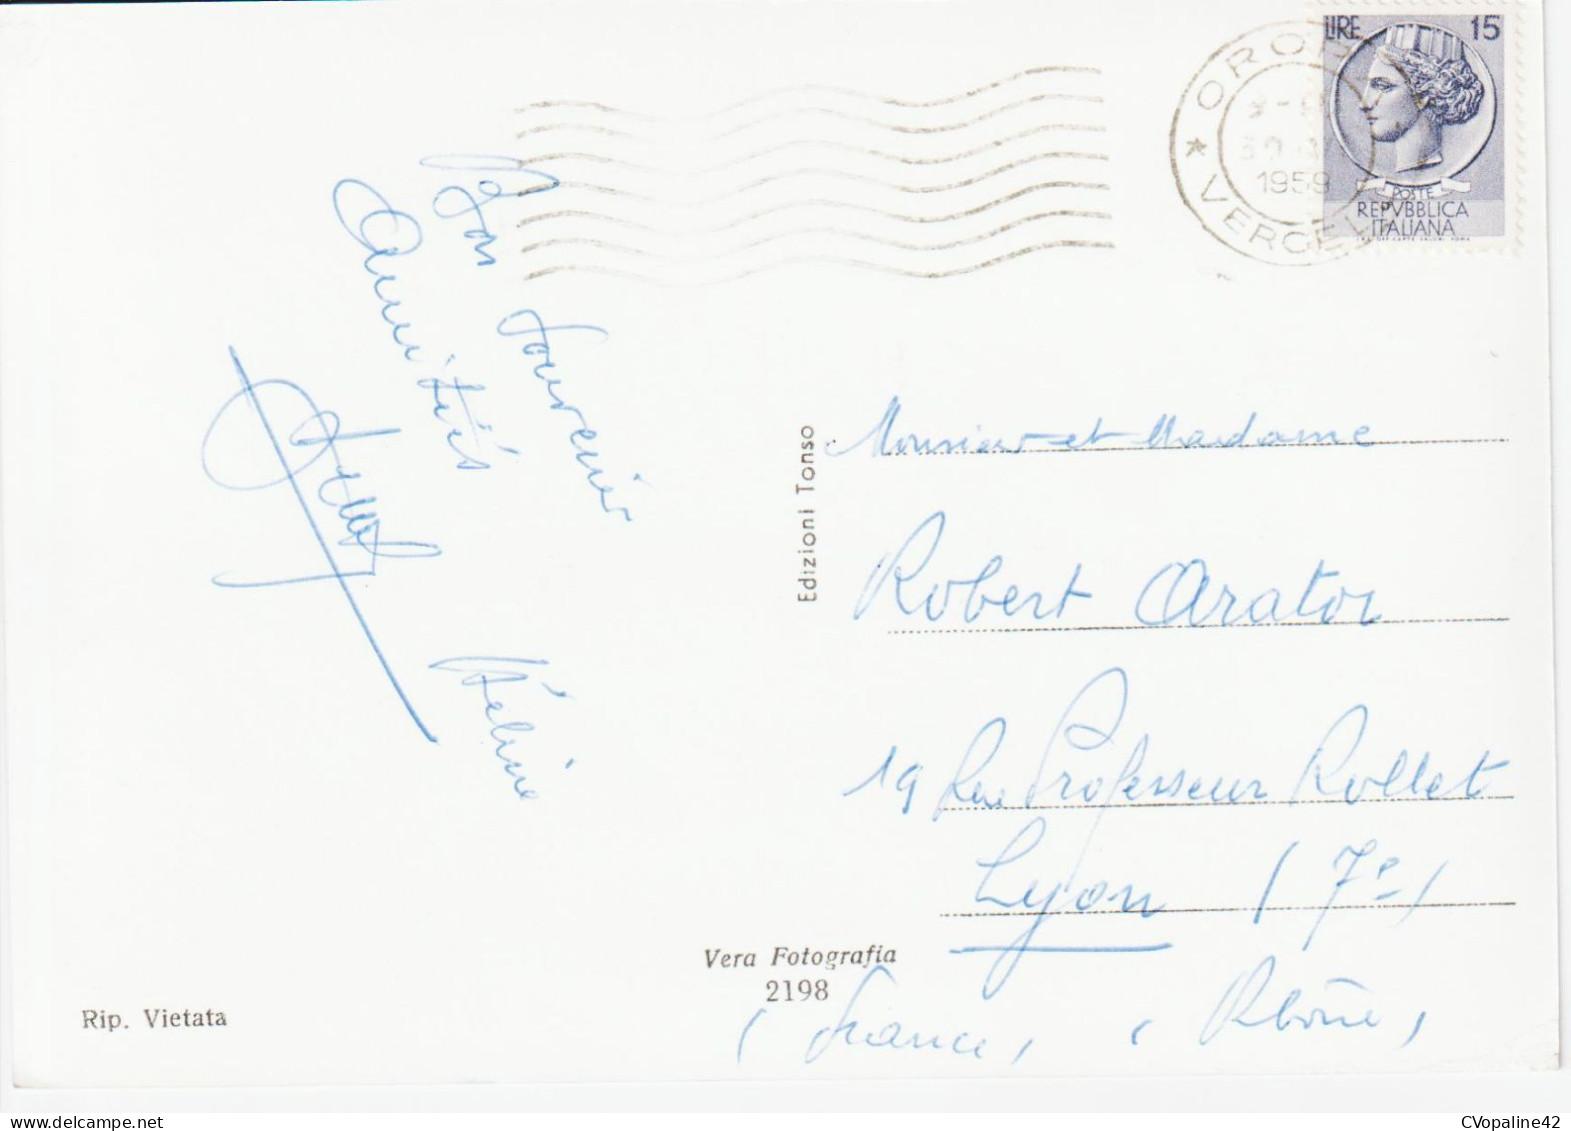 LIRE 15
POSTE
REPVBBLICA
ITALIANA
OROPA
1959
* VERCELLI
Bon Souvenir
Amitiés
Hélène
Edizioni Tonso
Monsieur et Madame
Robert Arator
19 Rue Professeur Rollet
Lyon (7e)
(France) (Rhône)
Vera Fotografia
2198
Rip. Vietata
CVopaline42